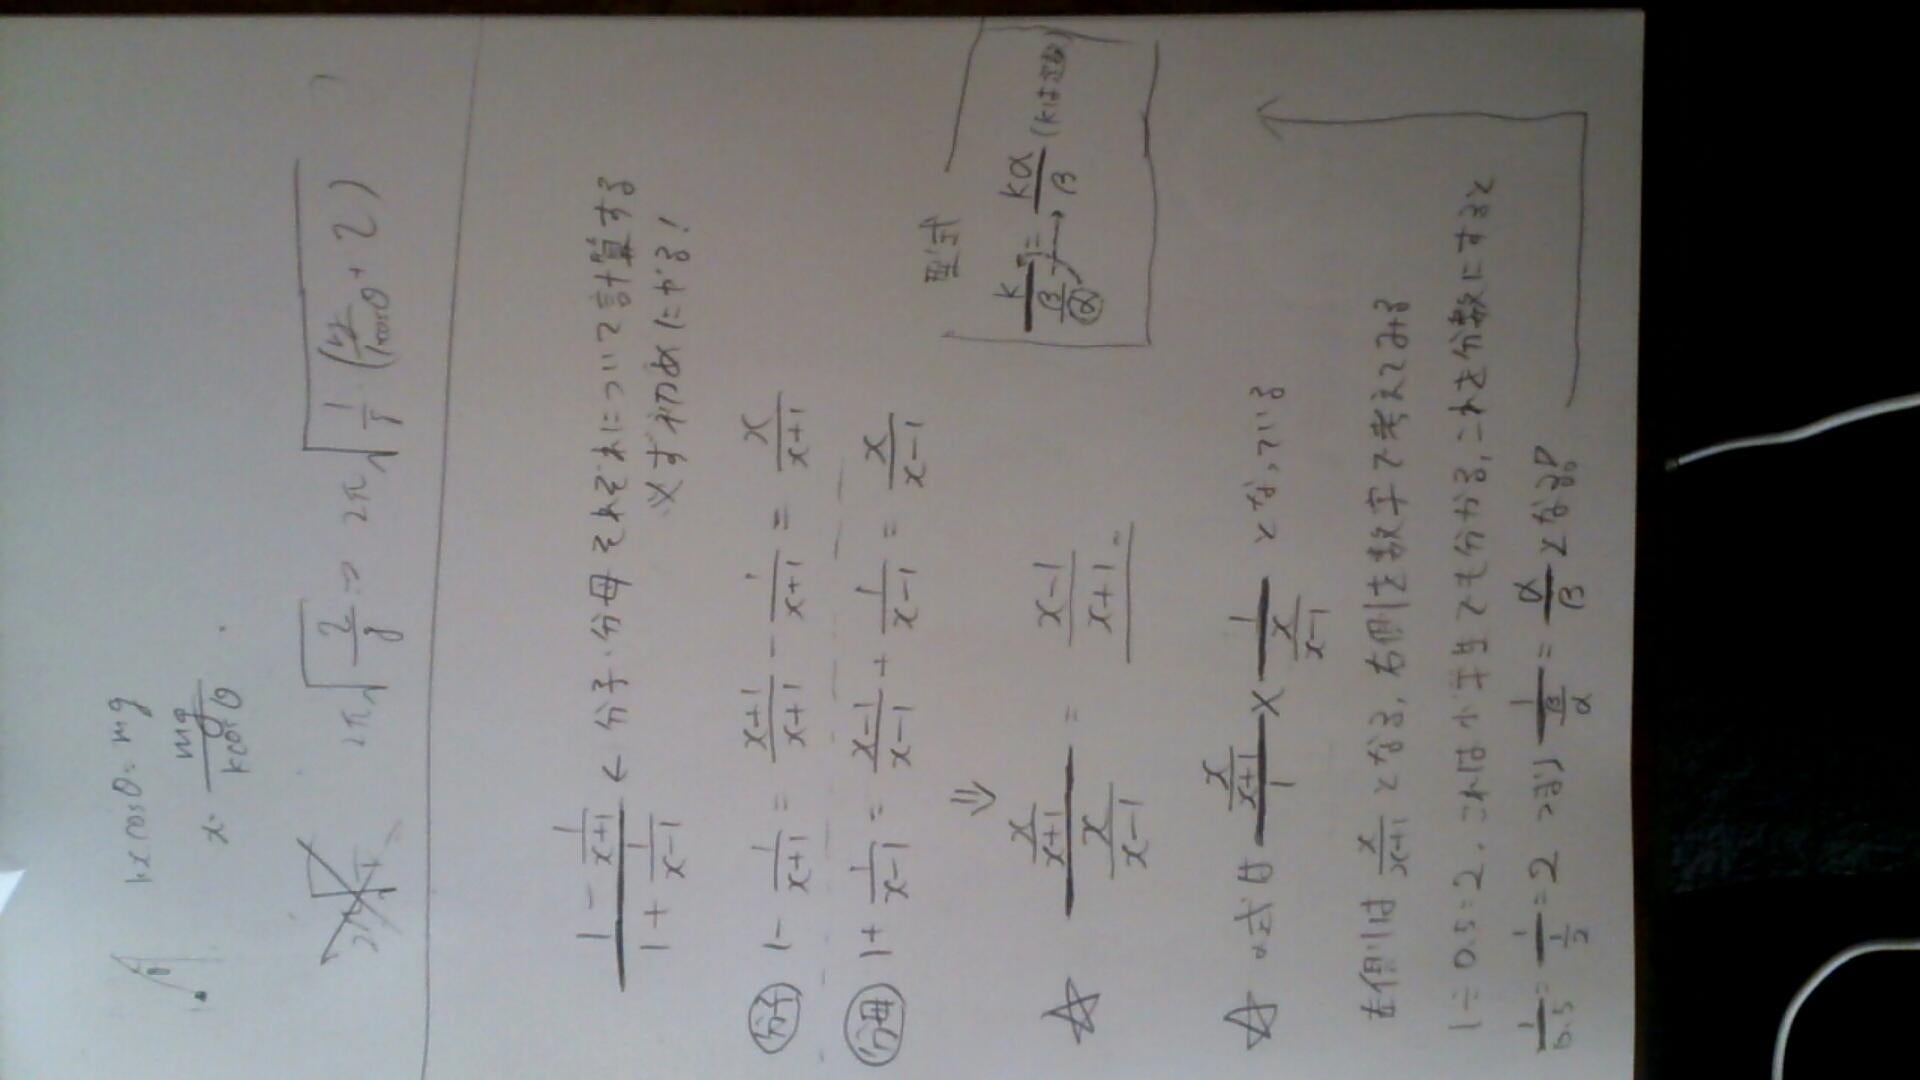 kxcosθ = mg
x = mg/kcosθ
2π√
1 - 1/(x+1) / 1 + 1/(x-1) ← 分子・分母それぞれについて計算する
※必ず初めにやる!
分子 1 - 1/(x+1) = (x+1)/(x+1) - 1/(x+1) = x/(x+1)
分母 1 + 1/(x-1) = (x-1)/(x-1) + 1/(x-1) = x/(x-1)
⇓
型式
☆ x/(x+1) / x/(x-1) = (x-1)/(x+1)
k / (β/α) = kα/β (kは
☆の式は x/(x+1) / 1 × 1 / x/(x-1) となっている
左側は x/(x+1) となる, 右側を数字で考えてみる
1÷0.5=2, これは小学生でも分かる, これを分数にすると
1/0.5 = 1/(1/2) = 2 つまり 1/(β/α) = α/β となる。